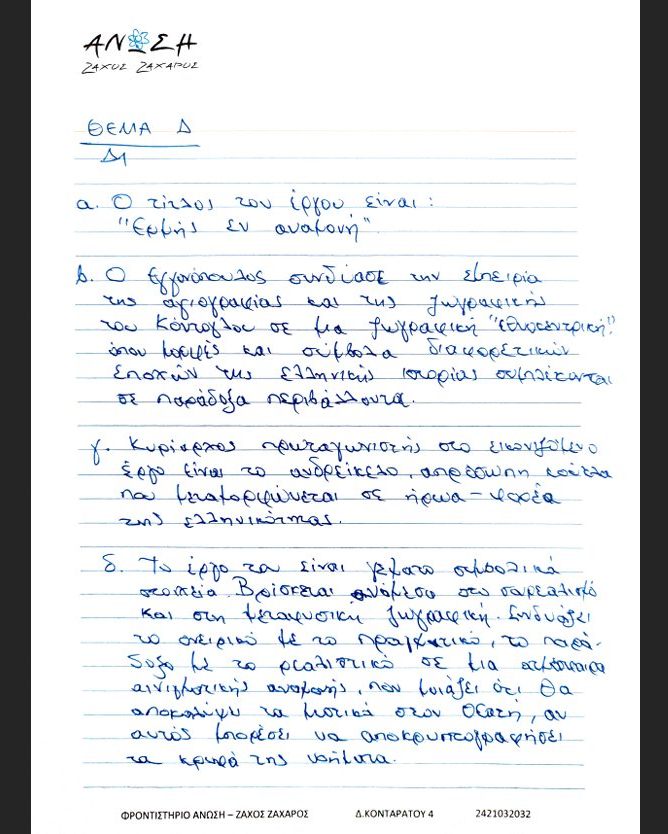 ΑΝΩΣΗ
ΖΑΧΟΣ ΖΑΧΑΡΟΣ
ΘΕΜΑ Δ
Δ1
α. Ο τίτλος του έργου είναι :
"Ερμής εν αναμονή".
β. Ο Εγγονόπουλος συνδύασε την εμπειρία
της αγιογραφίας και της ζωγραφικής
του Κόντογλου σε μια ζωγραφική "εθνοκεντρική".
όπου μορφές και σύμβολα διαφορετικών
εποχών της ελληνικής ιστορίας συμπλέκονται
σε παράδοξα περιβάλλοντα.
γ. Κυρίαρχος πρωταγωνιστής στο εικονιζόμενο
έργο είναι το ανδρείκελο, απρόσωπη κούκλα
που μεταμορφώνεται σε ήρωα - φορέα
της ελληνικότητας.
δ. Το έργο του είναι γεμάτο συμβολικά
στοιχεία. Βρίσκεται ανάμεσα στο σουρεαλισμό
και στη μεταφυσική ζωγραφική. Συνδυάζει
το ονειρικό με το πραγματικό, το παρά-
δοξο με το ρεαλιστικό σε μια ατμόσφαιρα
αινιγματικής αναμονής, που μοιάζει ότι θα
αποκαλύψει τα μυστικά στον θεατή, αν
αυτός μπορέσει να αποκρυπτογραφήσει
τα κρυφά της νοήματα.
ΦΡΟΝΤΙΣΤΗΡΙΟ ΑΝΩΣΗ – ΖΑΧΟΣ ΖΑΧΑΡΟΣ Δ.ΚΟΝΤΑΡΑΤΟΥ 4 2421032032